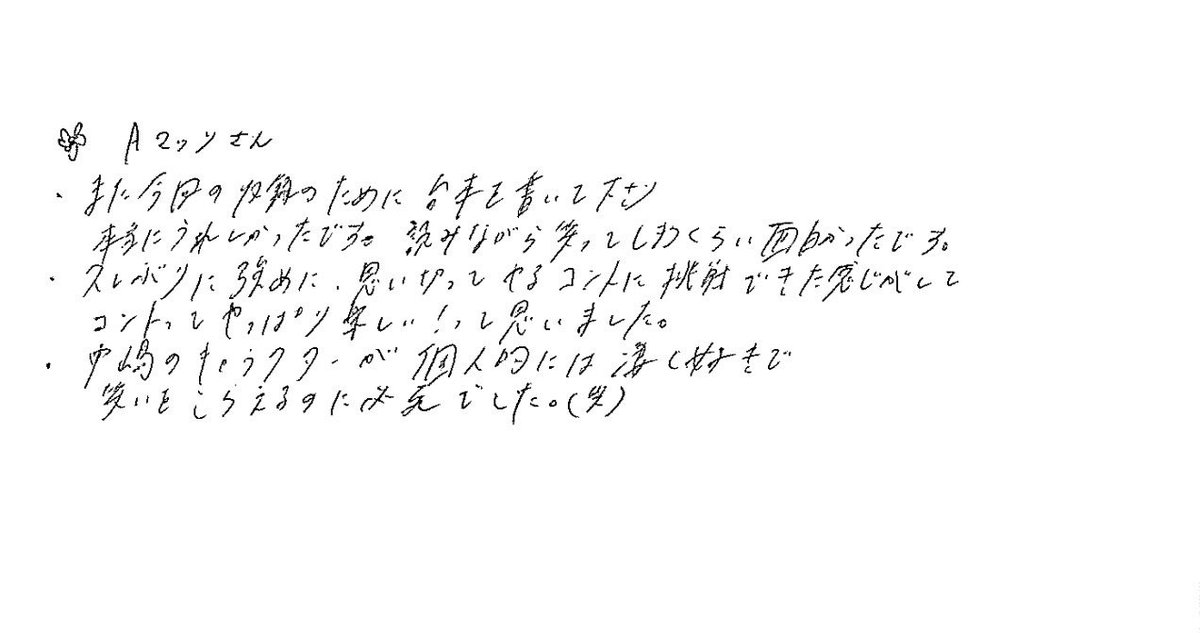 Aマッソさん
・また今回の収録のために台本を書いて下さり
本当にうれしかったです。読みながら笑ってしまうくらい面白かったです。
・久しぶりに強めに、思い切ってやるコントに挑戦できた感じがして
コントってやっぱり楽しい!って思いました。
・中嶋のキャラクターが個人的には凄く好きで
笑いをこらえるのに必死でした。(笑)